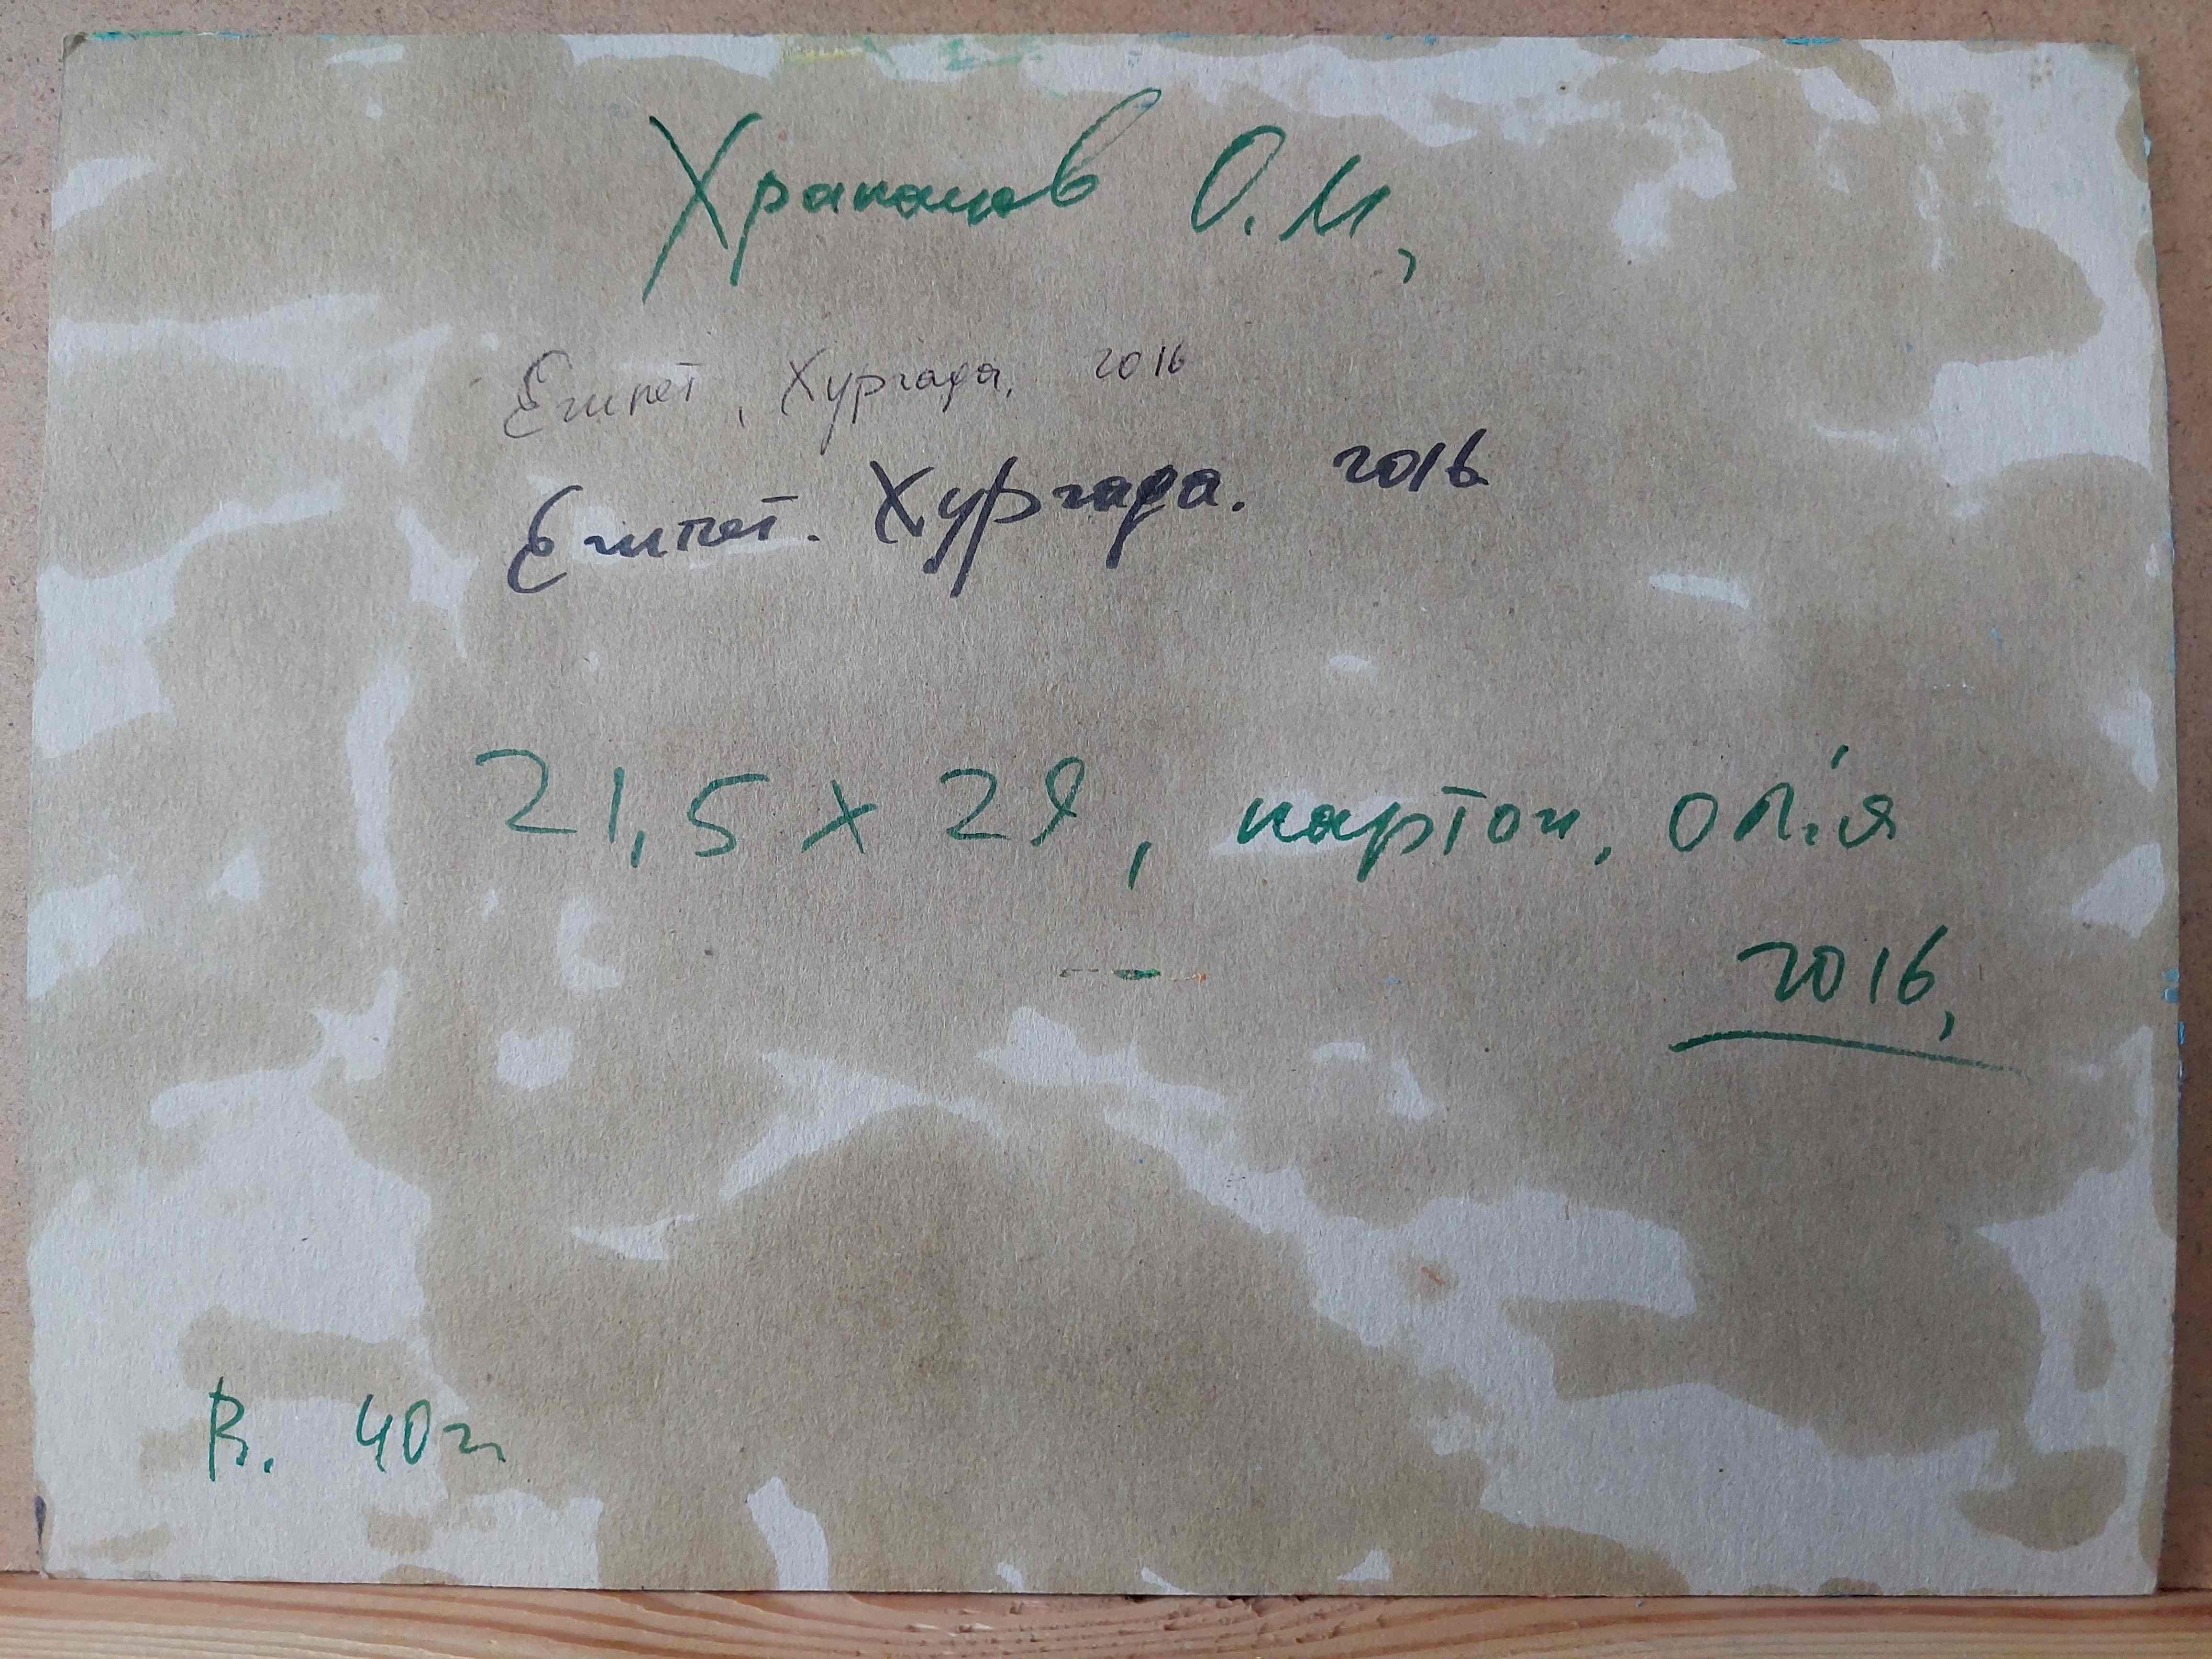 Храпачов О.М,
Египет, Хургада, 2016
Египет. Хургада. 2016
21,5 x 29, картон, олія
2016,
В. 40г.